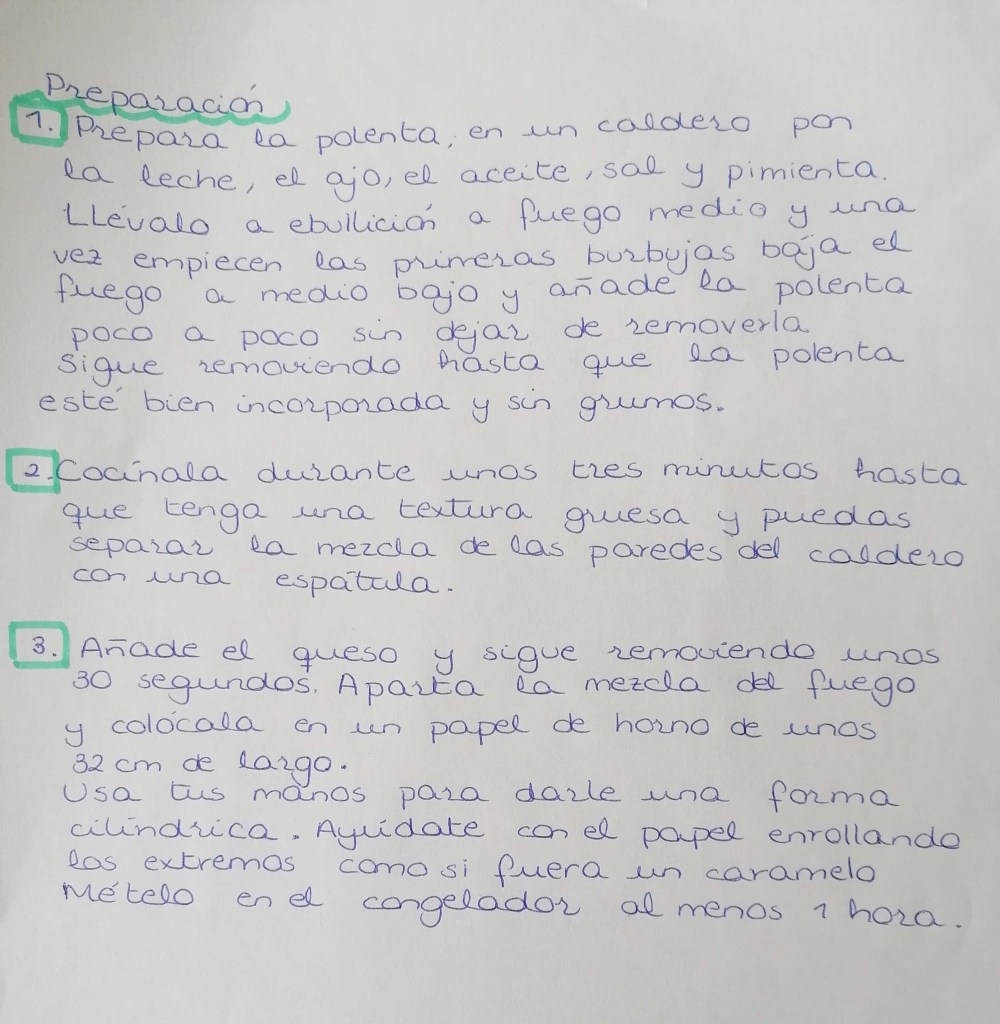 Preparación
1. Prepara la polenta, en un caldero pon
la leche, el ajo, el aceite, sal y pimienta.
LLévalo a ebullición a fuego medio y una
vez empiecen las primeras burbujas baja el
fuego a medio bajo y añade la polenta
poco a poco sin dejar de removerla
Sigue removiendo hasta que la polenta
esté bien incorporada y sin grumos.
2. Cocínala durante unos tres minutos hasta
que tenga una textura gruesa y puedas
separar la mezcla de las paredes del caldero
con una espátula.
3. Añade el queso y sigue removiendo unos
30 segundos. Aparta la mezcla del fuego
y colócala en un papel de horno de unos
32 cm de largo.
Usa tus manos para darle una forma
cilíndrica. Ayúdate con el papel enrollando
los extremos como si fuera un caramelo
Mételo en el congelador al menos 1 hora.